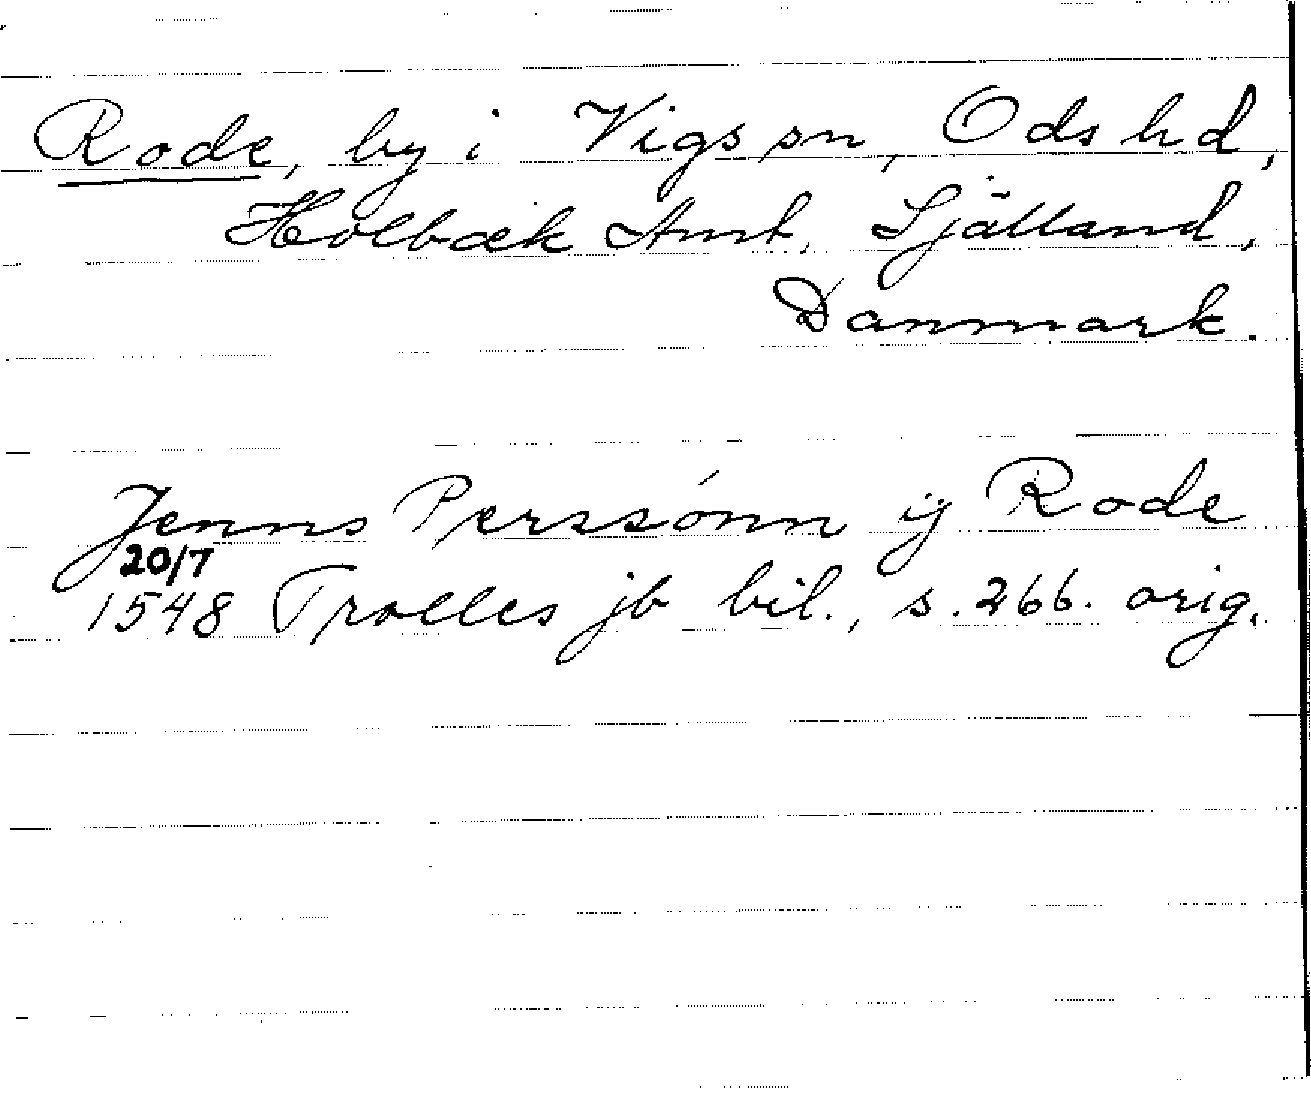 Rode, by i Vigs sn, Ods hd,
Holbæk Amt, Själland,
Danmark.
Jenns Perssónn ij Rode
20/7
1548 Trolles jb bil., s. 266. orig.